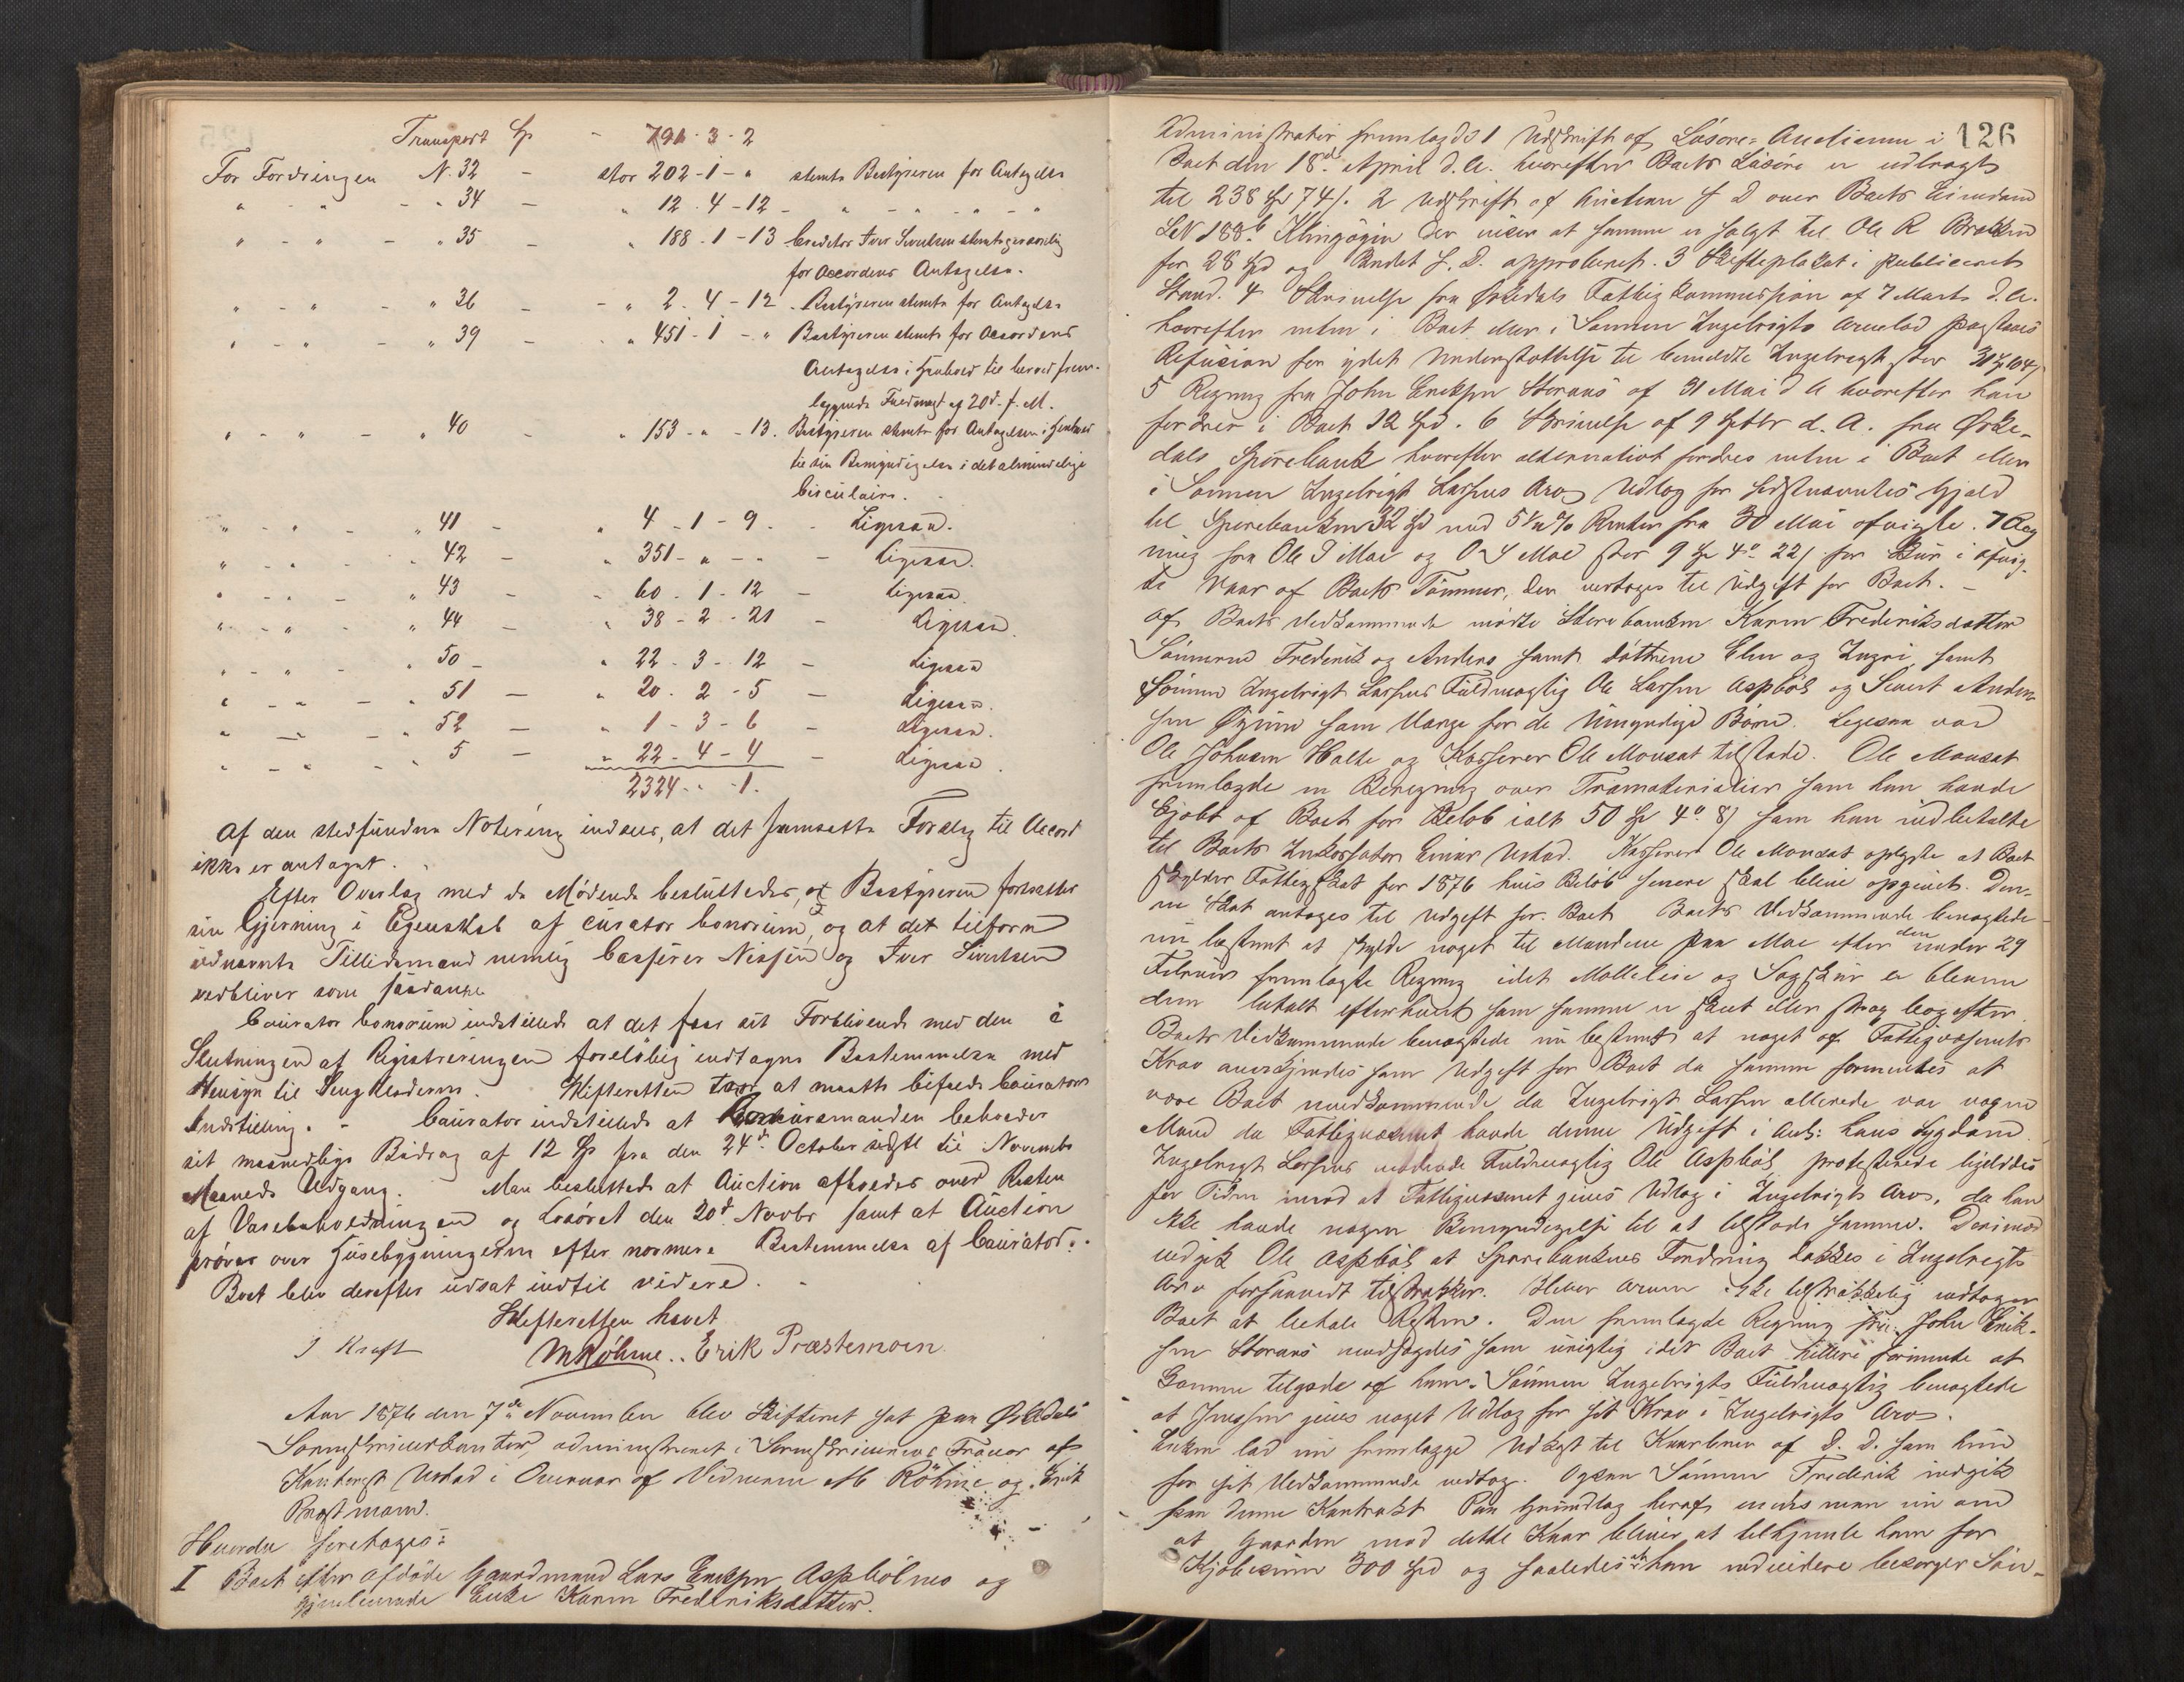 Transport Sp - 791-3-2
For Fordringen N. 32 - stor 202-1-" stemte Bestyreren for Antagelse
" - " - " 34 - " 12-4-12 - " - " - " - "
" - " - " 35 - " 188-1-13 Creditor Iver Sivertsen stemte personlig
for Accordens Antagelse.
" - " - " 36 - " 2-4-12 - Bestyreren stemte for Antagelse
" - " - " 39 - " 451-1-" Bestyreren stemte for Accordens
Antagelse i Henhold til herved frem-
lagende Fuldmagt af 20d. f. M.
" - " - " 40 - " 153-"-13. Bestyreren stemte for Antagelsen i Henhold
til sin Bemyndigelse i det almindelige
Circulaire.
" - " - " 41 - " 4-1-9. - Ligesaa.
" - " - " 42 - " 351-"-" - Ligesaa.
" - " - " 43 - " 60-1-12 - Ligesaa.
" - " - " 44 - " 38-2-21 - Ligesaa.
" - " - " 50 - " 22-3-12 - Ligesaa
" - " - " 51 - " 20-2-5 - Ligesaa.
" - " - " 52 - " 1-3-6 - Ligesaa.
" - " - " 5 - " 22-4-4 - Ligesaa.
2324-"-1.
Af den stedfundne Notering indsees, at det fremsatte Forslag til Accord
ikke er antaget.
Efter Overlæg med de Mödende besluttedes, at Bestyreren fortsætter
sin Gjerning i Egenskab af curator bonorum, og at det tilforn
udnævnte Tillidsmænd nemlig Casserer Nissen og Iver Sivertsen
vedbliver som saadanne
Curator bonorum indstillede at det faar sit Forblivende med den i
Slutningen af Registreringen foreløbig indtagne Bestemmelse med
Hensyn til Sengklæderne. Skifteretten tror at maatte bifalde Curators
Indstilling. - Curator indstillede at Concursmanden beholder
sit maanedlige Bidrag af 12 Sp fra den 24de October sidstl til November
Maaneds Udgang. Man besluttede at Auction afholdes over Resten
af Varebeholdningen og Løsöret den 20d Novbr samt at Auction
pröves over Husebygningerne efter nærmere Bestemmelse af Curator.
Boet blev derefter udsat indtil videre.
Skifteretten hævet
J Kraft MRöhme.. Erik Præstemoen
Aar 1876 den 7de November blev Skifteret sat paa Ørkedals
Sorenskriverkontor, administreret i Sorenskriverens Fravær af
Kontorist Ustad i Overvær af Vidnerne M Röhme og Erik
Præstmoen.
Hvorda foretoges:
I Boet efter afdöde Gaardmand Lars Ericksen Asphölmo og
gjenlevende Enke Karen Frederiksdatter.
126
Administrator fremlagde 1 Udskrift af Lösöre-Auctionen i
Boet den 18de April d.A. hvorefter Boets Lösöre er udbragt
til 238 Spd 74 s. 2 Udskrift af Auction f D over Boets Eiendom
LN 188b Klingöyen der viser at samme er solgt til Ole R Brækken
for 28 Spd og Budet f. D. approberet. 3 Skifteplakat i publiceret
Stand. 4 Skrivelse fra Ørkedals Fattigkommission af 7 Marts d.A.
hvorefter enten i Boet eller i Sönnen Ingebrigts Arvelod paastaaes
Refusion for ydet Understöttelse til bemeldte Ingebrigt stor 31 Sp 104 s
5 Regning fra John Ericksen Storaas af 31 Mai d A hvorefter han
fordrer i Boet 12 Spd. 6 Skrivelse af 9 Septbr d. A. fra Ørke-
dals Sparebank hvorefter alternativt fordres enten i Boet eller
i Sönnen Ingebrigt Larsens Arv Udlæg for sidstnævntes Gjæld
til Sparebanken 32 Spd med 5½ % Renter fra 30 Mai afvigte. 7 Reg
ning fra Ole I Moe og O I Moe stor 9 Sp 4 o 22 s for Skur i afvig-
te Vaar af Boets Tömmer, der vedtoges til Udgift for Boet. -
Af Boets Vedkommende mödte Stervboenken Karen Frederiksdatter
Sönnerne Frederik og Anders samt döttrene Elen og Ingri, samt
Sönnen Ingebrigt Larsens Fuldmægtig Ole Larsen Asphöl og Sivert Ander-
sen Øyum som Værge for de Umyndige Börn. Ligesaa var
Ole Johnsen Holte og Kasserer Ole Monsæt tilstede. Ole Monsæt
fremlagde en Beregning over Træmaterialier som han havde
kjöbt af Boet for Belöb ialt 50 Sp 4 o 8 s som han indbetalte
til Boets Inkassator Einar Ustad. Kasserer Ole Monsæt oplyste at Boet
skylder Fattigskat for 1876 hvis Belöb senere skal blive opgivet. Den-
ne Skat antoges til Udgift for Boet Boets Vedkommende benægtede
nu bestemt at skylde noget til Mændene paa Moe efter den under 29
Februar fremlagte Regning idet Mölleleie og Sagskur er bleven
dem betalt efterhvert som samme er skeet eller strax bagefter.
Boets Vedkommende benægtede nu bestemt at noget af Fattigvæsenets
Krav anerkjendes som Udgift for Boet da samme formentes at
være Boet uvedkommende da Ingebrigt Larsen allerede var voxen
Mand da Fattigvæsenet havde denne Udgift i Anl: hans Sygdom.
Ingebrigt Larsens mödende Fuldmægtig Ole Asphöl protesterede ligeledes
for Tiden imod at Fattigvæsenet gives Udlæg i Ingebrigts Arv, da han
ikke havde nogen Bemyndigelse til at tilstede samme. Derimod
indgik Ole Asphöl at Sparebankens Fordring dækkes i Ingebrigts
Arv forsaavidt tilstrækker. Bliver Arven ikke tilstrækkelig vedtager
Boet at betale Resten. Den fremlagde Regning fra John Erik-
sen Storaas modsagdes som urigtig idet Boet hellere formente at
komme tilgode af ham. Sönnen Ingebrigts Fuldmægtig benægtede
at Jenssen gives noget Udlæg for sit Krav i Ingebrigts Arv.
Enken lod nu fremlægge Udkast til Kaarbrev af D. D. som hun
for sit Vedkommende vedtog. Ogsaa Sönnen Frederik indgik
paa denne Kontrakt Paa Grundlag heraf enedes man nu om
at Gaarden med dette Kaar bliver at tilkjende ham for
Kjöbesum 300 Spd og saaledes at han endvidere besörger Sön-